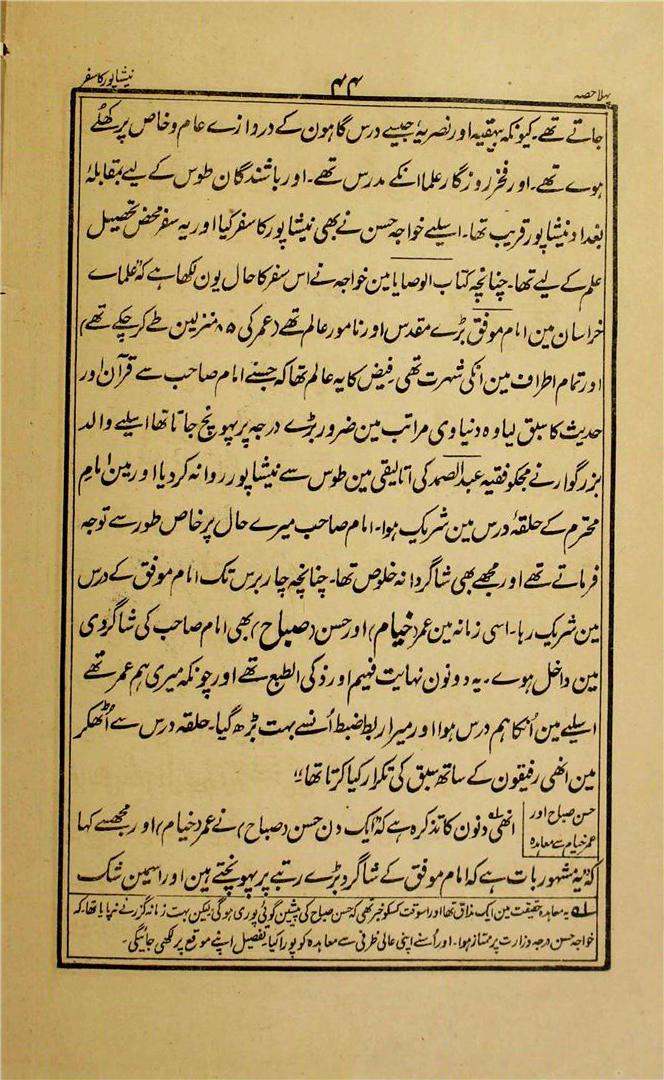 پہلا حصہ
۴۴
نیشاپور کا سفر
جاتے تھے۔ کیونکہ بیہقیہ اور نصریہ جیسے درس گاہون کے دروازے عام و خاص پر کھلے
ہوے تھے۔ اور فخر روزگار علما انکے مدرس تھے۔ اور باشندگان طوس کے لیے بمقابلۂ
بغداد نیشاپور قریب تھا۔ اسلیے خواجہ حسن نے بھی نیشاپور کا سفر کیا اور یہ سفر محض تحصیل
علم کے لیے تھا۔ چنانچہ کتاب الوصایا مین خواجہ نے اس سفر کا حال یون لکھا ہے کہ "علماے
خراسان مین امام موفق بڑے مقدس اور نامور عالم تھے (عمر کی ۸۵ منزلین طے کر چکے تھے)
اور تمام اطراف مین انکی شہرت تھی فیض کا یہ عالم تھا کہ جسنے امام صاحب سے قرآن اور
حدیث کا سبق لیا وہ دنیاوی مراتب مین ضرور بڑے درجہ پر پہونچ جاتا تھا اسلیے والد
بزرگوار نے مجکو فقیہ عبدالصمد کی اتالیقی مین طوس سے نیشاپور روانہ کر دیا اور مین امام
محترم کے حلقۂ درس مین شریک ہوا۔ امام صاحب میرے حال پر خاص طور سے توجہ
فرماتے تھے اور مجھے بھی شاگردانہ خلوص تھا۔ چنانچہ چار برس تک امام موفق کے درس
مین شریک رہا۔ اسی زمانہ مین عمر (خیام) اور حسن (صباح) بھی امام صاحب کی شاگردی
مین داخل ہوے۔ یہ دونون نہایت فہیم اور ذکی الطبع تھے اور چونکہ میری ہم عمر تھے
اسلیے مین اُنکا ہم درس ہوا اور میرا ربط ضبط اُنسے بہت بڑھ گیا۔ حلقہ درس سے اُٹھکر
مین انھی رفیقون کے ساتھ سبق کی تکرار کیا کرتا تھا"
حسن صباح اور
عمر خیام سے معاہدہ
انھی دنون کا تذکرہ ہے کہ "ایک دن حسن (صباح) نے عمر (خیام) اور مجھسے کہا
کہ "یہ مشہور بات ہے کہ امام موفق کے شاگرد بڑے رتبے پر پہونچتے ہین اور اسمین شک
لہ یہ معاہدہ حقیقت مین ایک مذاق تھا اور اسوقت کسکو خبر تھی کہ حسن صباح کی پیشین گوئی پوری ہوگی لیکن بہت زمانہ گزرنے نپایا تھا۔ کہ
خواجہ حسن درجہ وزارت پر ممتاز ہوا۔ اور اُسنے اپنی عالی ظرفی سے معاہدہ کو پورا کیا۔ تفصیل اپنے موقع پر لکھی جائیگی۔